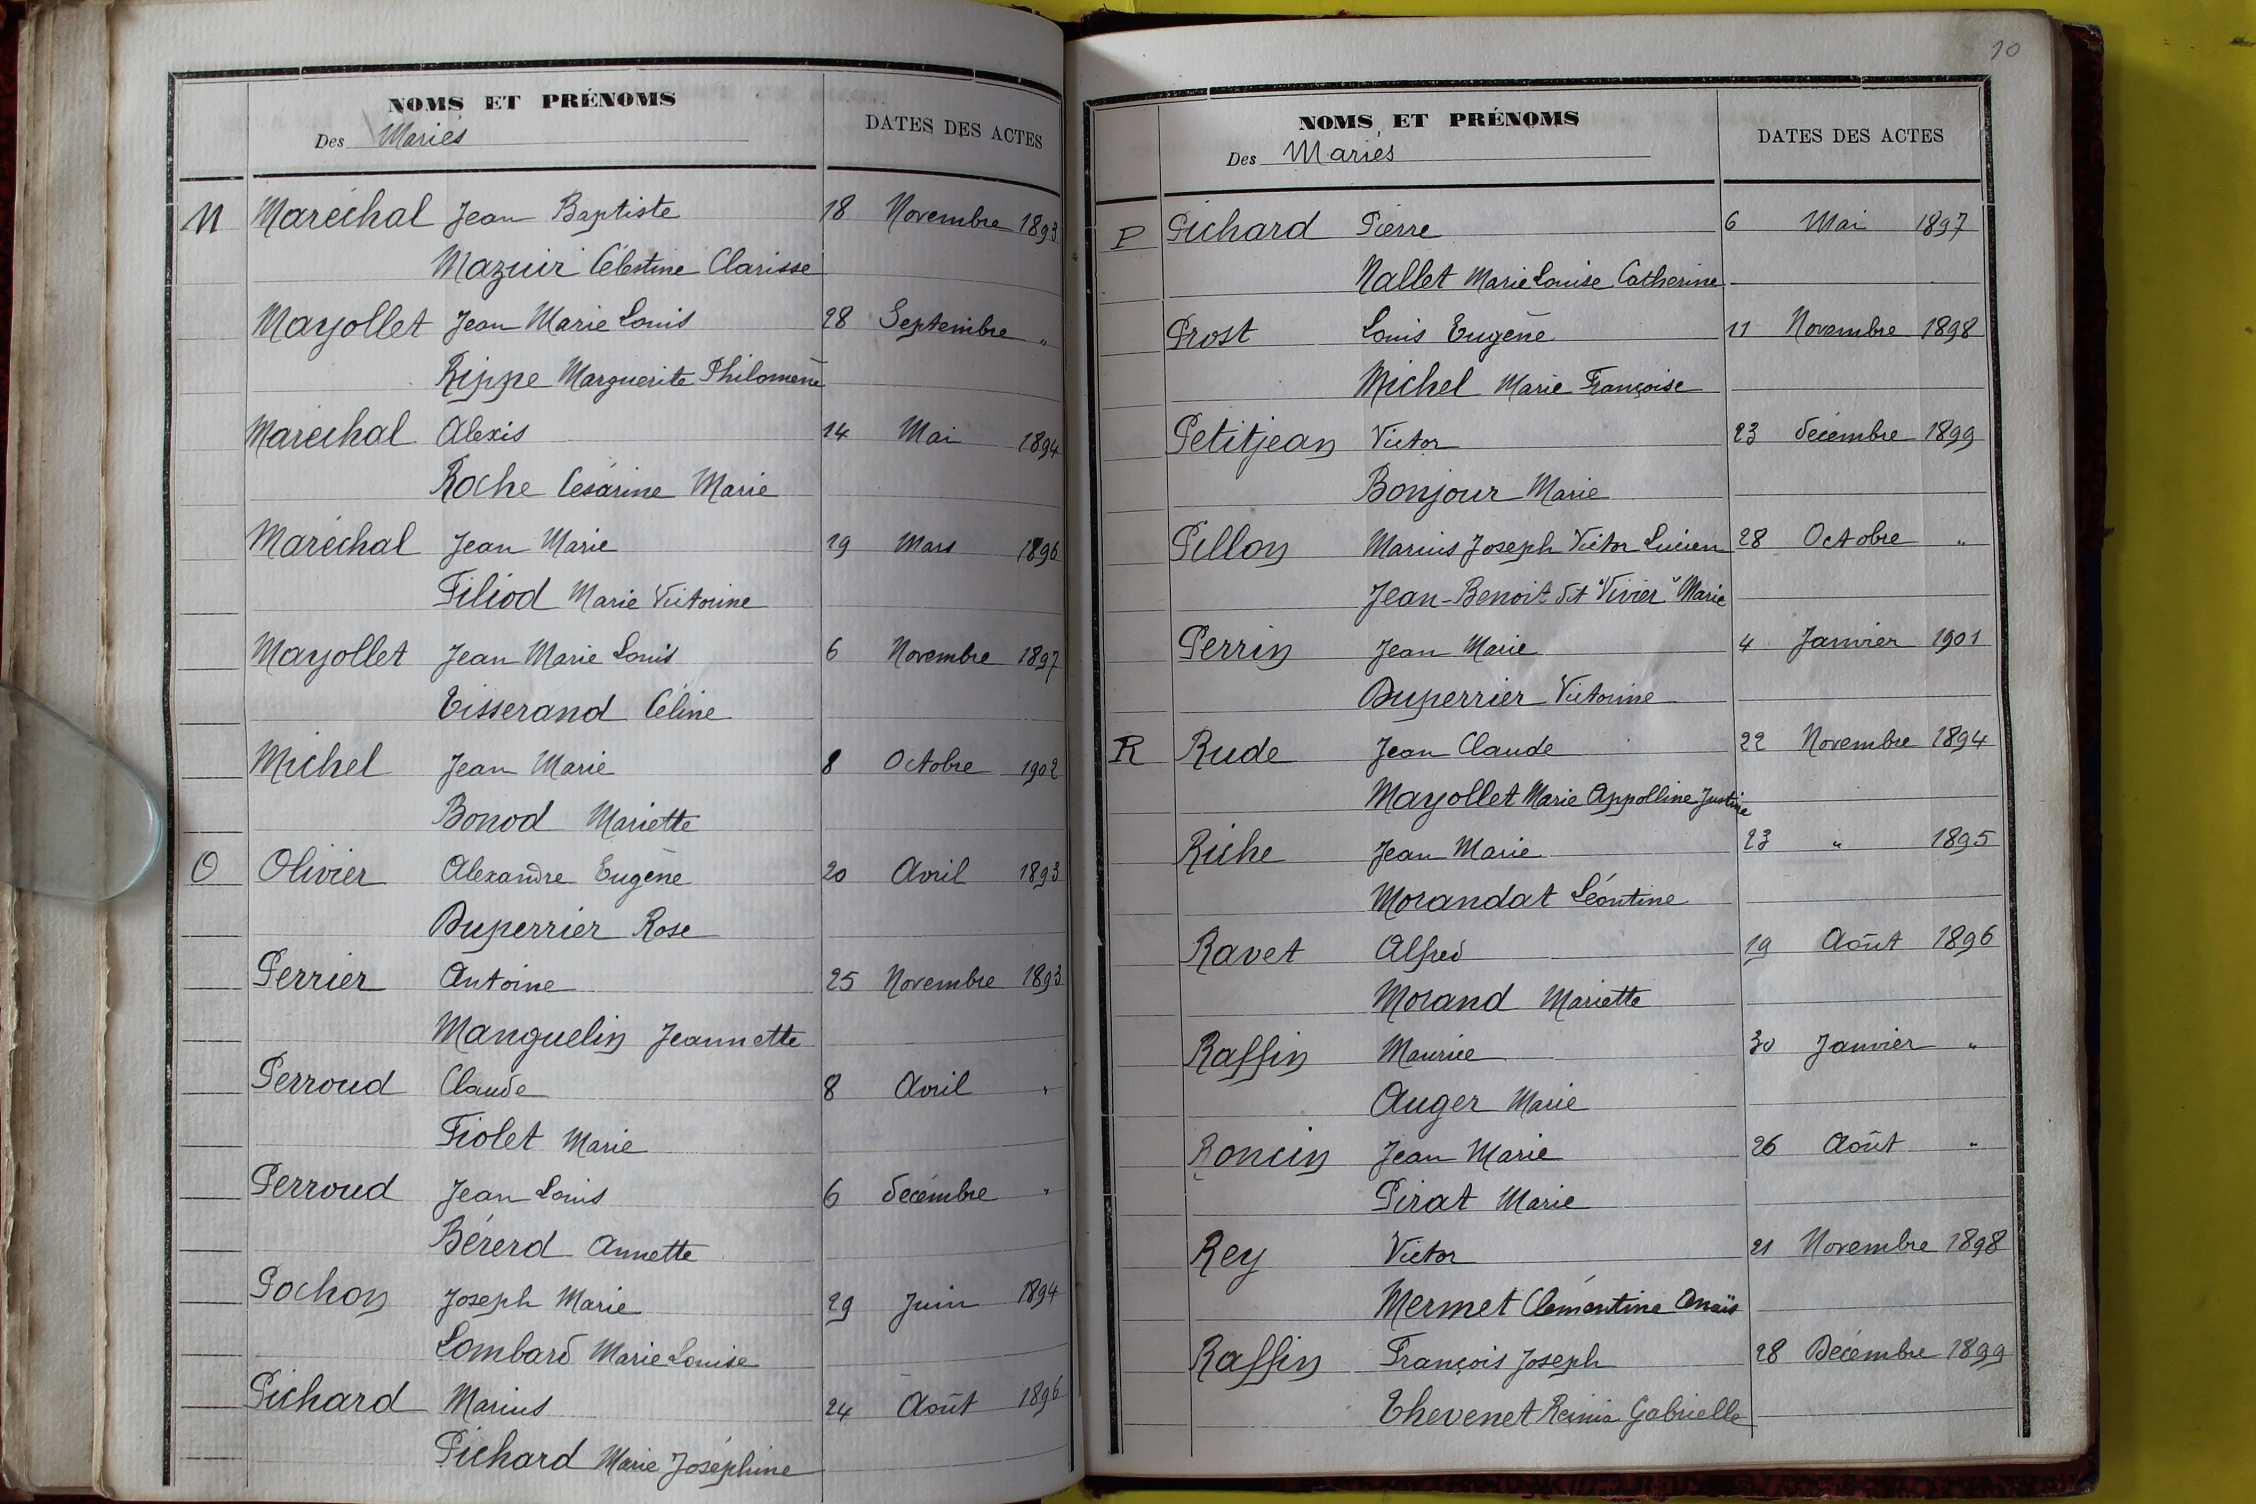 NOMS ET PRÉNOMS
Des Mariés
DATES DES ACTES
M Maréchal Jean Baptiste 18 Novembre 1893
Mazuir Célestine Clarisse
Mayollet Jean Marie Louis 28 Septembre "
Rippe Marguerite Philomène
Maréchal Alexis 14 Mai 1894
Roche Césarine Marie
Maréchal Jean Marie 19 Mars 1896
Filiod Marie Victorine
Mayollet Jean Marie Louis 6 Novembre 1897
Tisserand Céline
Michel Jean Marie 8 Octobre 1902
Bonod Mariette
O Olivier Alexandre Eugène 20 Avril 1893
Duperrier Rose
Perrier Antoine 25 Novembre 1893
Manguelin Jeannette
Perroud Claude 8 Avril "
Fiolet Marie
Perroud Jean Louis 6 décembre "
Bérerd Annette
Pochon Joseph Marie 29 Juin 1894
Lombard Marie Louise
Pichard Marius 24 Août 1896
Pichard Marie Joséphine
10
NOMS ET PRÉNOMS
Des Mariés
DATES DES ACTES
P Pichard Pierre 6 Mai 1897
Nallet Marie Louise Catherine
Prost Louis Eugène 11 Novembre 1898
Michel Marie Françoise
Petitjean Victor 23 décembre 1899
Bonjour Marie
Pillon Marius Joseph Victor Lucien 28 Octobre "
Jean-Benoit dit "Vivier" Marie
Perrin Jean Marie 4 Janvier 1901
Duperrier Victorine
R Rude Jean Claude 22 Novembre 1894
Mayollet Marie Appolline Justine
Riche Jean Marie 23 " 1895
Morandat Léontine
Ravet Alfred 19 Août 1896
Morand Mariette
Raffin Maurice 30 Janvier "
Auger Marie
Roncin Jean Marie 26 Août "
Pirat Marie
Rey Victor 21 Novembre 1898
Mermet Clémentine Anaïs
Raffin François Joseph 28 Décembre 1899
Thevenet Reinia Gabrielle